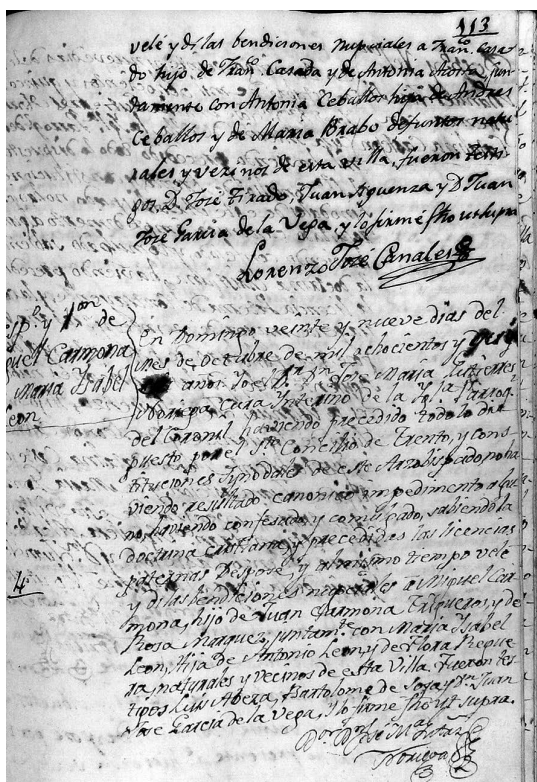 113
velé y di las bendiciones nupciales a Fran.co Casa-
do hijo de Fran.co Casada y de Antonia jun-
tamente con Antonia Ceballos hija de Andres
Ceballos y de Maria Brabo defuntos natu-
rales y vezinos de esta villa, fueron testi-
gos D. José tirado, Juan Aguenza y D Juan
José Garcia de la Vega, y lo firmé fho ut supra
Lorenzo José Canales
sp.o y V.on de
Carmona
Maria Ysabel
Leon
En Domingo veinte y nueve dias del
mes de Octubre de mil ochocientos y
años Yo el D.r D.n José María Gutierres
Cura Interino de la Yg.a Parroq.l
del Coronil haviendo precedido todo lo dis-
puesto por el S.to Concilio de Trento, y cons-
tituciones Sinodales de este Arzobispado no ha-
viendo resultado canonico impedimento algu-
no, haviendo confesado, y comulgado, sabiendo la
doctrina cristiana, y precedidas las licencias
paternas Desposé, y al mismo tiempo velé
y di las bendiciones nupciales a Miguel Car-
mona, hijo de Juan Carmona y de
Rosa Marquez, juntam.te con María Ysabel
Leon, hija de Antonio Leon, y de Flora Reque-
na, naturales y vecinos de esta Villa, fueron tes-
tigos Luis Abeza, Bartolome de Soya y D.n Juan
Jose Garcia de la Vega, y lo firmé fho ut supra.
4